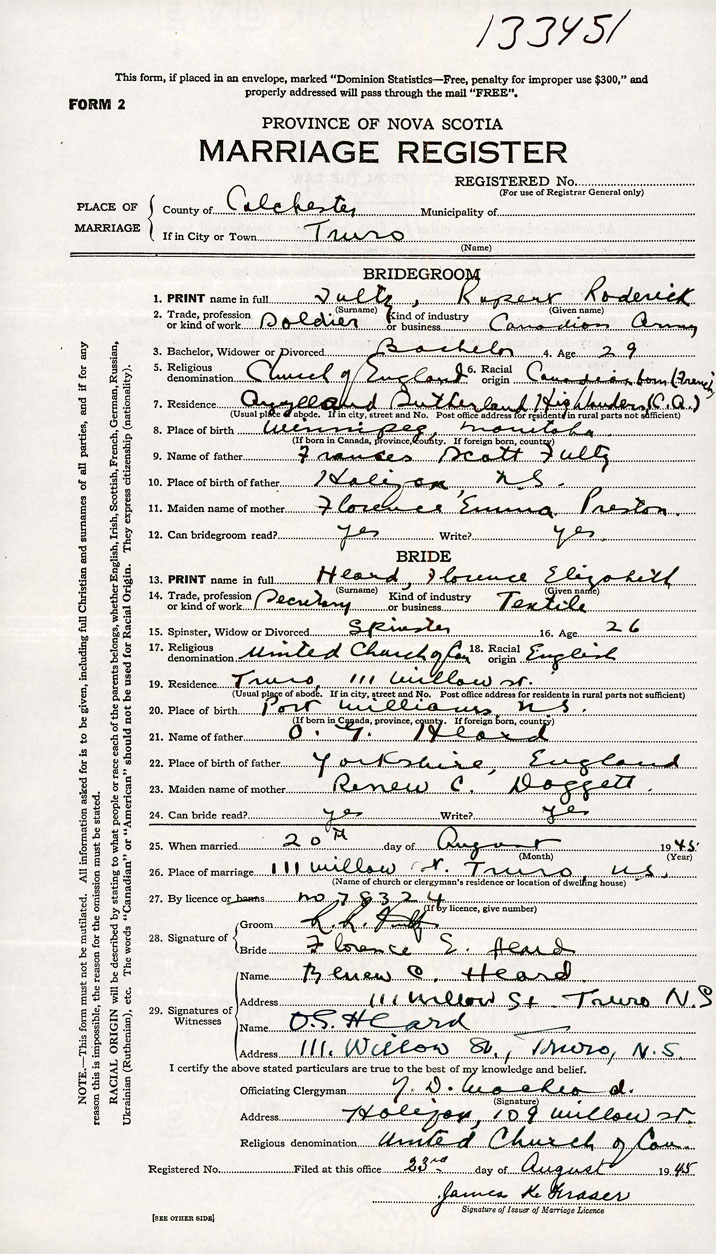 133451
This form, if placed in an envelope, marked "Dominion Statistics—Free, penalty for improper use $300," and
properly addressed will pass through the mail "FREE".
FORM 2
PROVINCE OF NOVA SCOTIA
MARRIAGE REGISTER
REGISTERED No.
(For use of Registrar General only)
PLACE OF MARRIAGE
County of Colchester Municipality of
If in City or Town Truro
(Name)
BRIDEGROOM
1. PRINT name in full Fultz, Rupert Roderick
(Surname) (Given name)
2. Trade, profession or kind of work Soldier Kind of industry or business Canadian Army
3. Bachelor, Widower or Divorced Bachelor 4. Age 29
5. Religious denomination Church of England 6. Racial origin Canadian born (French)
7. Residence Argyll and Sutherland Highlanders (C.A.)
(Usual place of abode. If in city, street and No. Post office address for residents in rural parts not sufficient)
8. Place of birth Winnipeg, Manitoba
(If born in Canada, province, county. If foreign born, country)
9. Name of father Frances Scott Fultz
10. Place of birth of father Halifax N.S.
11. Maiden name of mother Florence Emma Preston.
12. Can bridegroom read? yes Write? yes.
BRIDE
13. PRINT name in full Heard, Florence Elizabeth
(Surname) (Given name)
14. Trade, profession or kind of work Secretary Kind of industry or business Textile
15. Spinster, Widow or Divorced Spinster 16. Age 26
17. Religious denomination United Church of Can 18. Racial origin English
19. Residence Truro, 111 Willow St.
(Usual place of abode. If in city, street and No. Post office address for residents in rural parts not sufficient)
20. Place of birth Port Williams, N.S.
(If born in Canada, province, county. If foreign born, country)
21. Name of father O. G. Heard
22. Place of birth of father Yorkshire, England
23. Maiden name of mother Renew C. Doggett.
24. Can bride read? yes Write? yes
25. When married 20th day of August 1945
(Month) (Year)
26. Place of marriage 111 Willow St. Truro, N.S.
(Name of church or clergyman's residence or location of dwelling house)
27. By licence or banns no 78324
(If by licence, give number)
28. Signature of
Groom R. R. Fultz
Bride Florence E. Heard
29. Signatures of Witnesses
Name Renew C. Heard.
Address 111 Willow St. Truro N.S
Name O.G. Heard
Address 111. Willow St., Truro, N.S.
I certify the above stated particulars are true to the best of my knowledge and belief.
Officiating Clergyman D. MacLeod.
(Signature)
Address Halifax, 109 Willow St.
Religious denomination United Church of Can.
Registered No. Filed at this office 23rd day of August 1945
James K. Fraser
Signature of Issuer of Marriage Licence
[SEE OTHER SIDE]
NOTE.—This form must not be mutilated. All information asked for is to be given, including full Christian and surnames of all parties, and if for any
reason this is impossible, the reason for the omission must be stated.
RACIAL ORIGIN will be described by stating to what people or race each of the parents belongs, whether English, Irish, Scottish, French, German, Russian,
Ukrainian (Ruthenian), etc. The words "Canadian" or "American" should not be used for Racial Origin. They express citizenship (nationality).